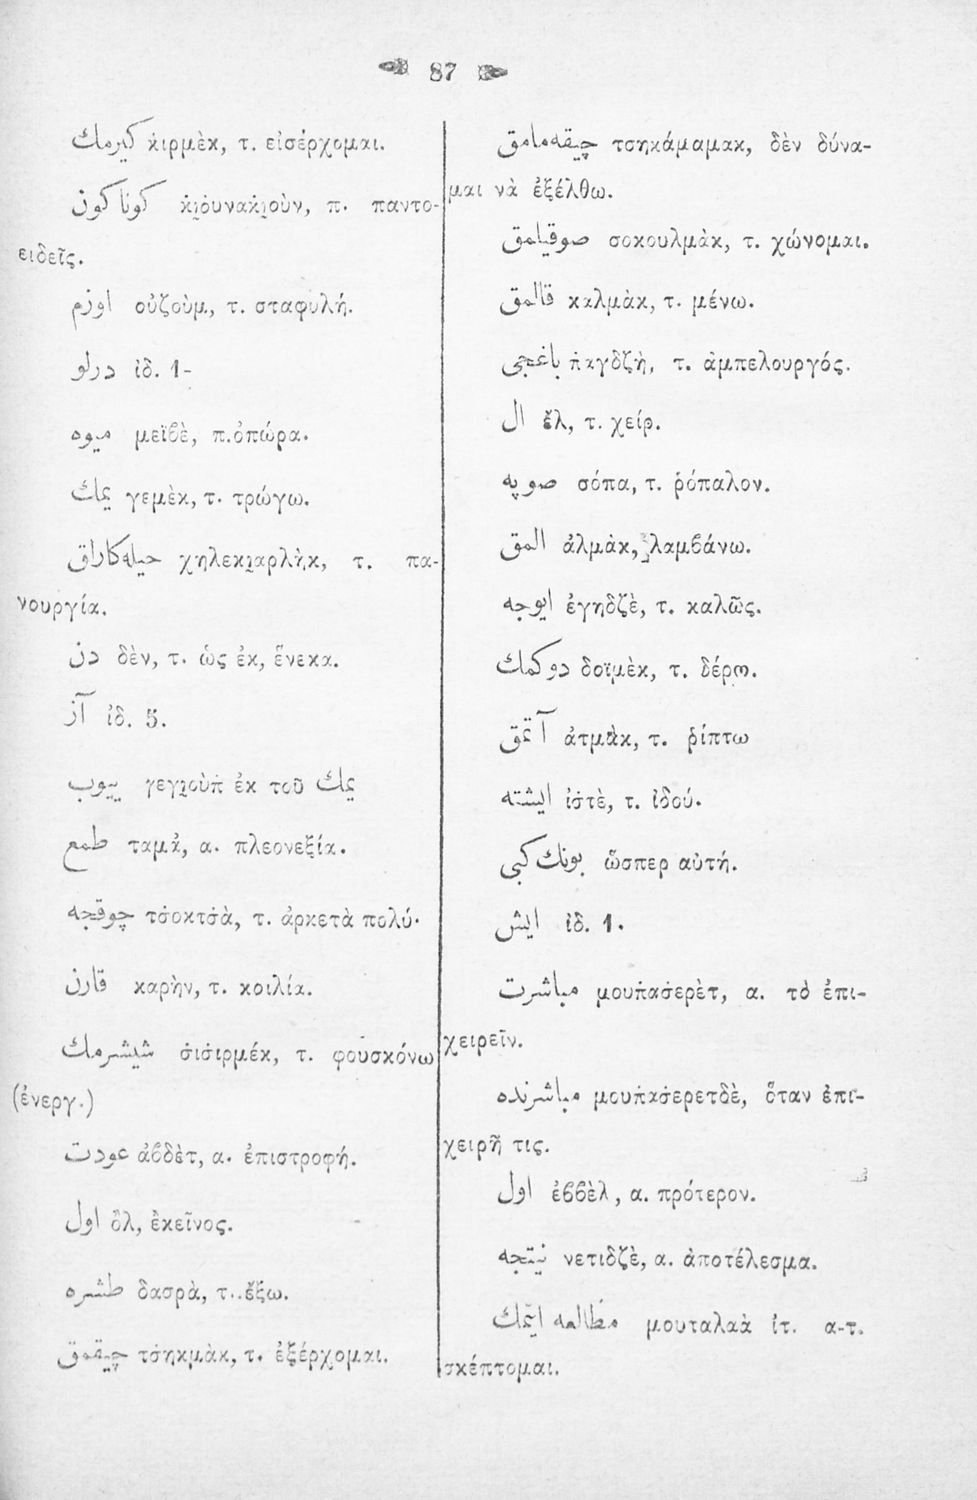 87
كيرمك κιρμὲκ, τ. εἰσέρχομαι.
كوناكون κι̯ο̇υνακι̯οὺν, π. παντο-
ειδεῖς.
اوزم οὐζοὺμ, τ. σταφυλή.
درلو ἰδ. 1-
ميوه μεϊβὲ, π.ὀπώρα.
يمك γεμὲκ, τ. τρώγω.
حيله‌كارلق χηλεκι̯αρλὴκ, τ. πα-
νουργία.
دن δὲν, τ. ὡς ἐκ, ἕνεκα.
آز ἰδ. 5.
ييوب γεγι̯οὺπ̇ ἐκ τοῦ يمك
طمع ταμὰ, α. πλεονεξία.
چوقجه τσ̇οκτσ̇ὰ, τ. ἀρκετὰ πολύ.
قارن καρὴν, τ. κοιλία.
شيشرمك σ̇ισ̇ιρμέκ, τ. φουσκόνω
(ἐνεργ.)
عودت ἀβδὲτ, α. ἐπιστροφή.
اول ὂλ, ἐκεῖνος.
طشره δασρὰ, τ. ἔξω.
چيقمق τσ̇ηκμὰκ, τ. ἐξέρχομαι.
چيقه‌مامق τσηκάμαμακ, δὲν δύνα-
μαι νὰ ἐξέλθω.
صوقيلمق σοκουλμὰκ, τ. χώνομαι.
قالمق καλμὰκ, τ. μένω.
باغچى π̇αγδζὴ, τ. ἀμπελουργός.
ال ἒλ, τ. χείρ.
صوپه σόπα, τ. ῥόπαλον.
المق ἀλμὰκ, λαμβάνω.
ايوجه ἐγηδζὲ, τ. καλῶς.
دوكمك δοϊμὲκ, τ. δέρω.
آتمق ἀτμὰκ, τ. ῥίπτω
ايشته ἰσ̇τὲ, τ. ἰδού.
بونك كبى ὥσπερ αὐτή.
ايش ἰδ. 1.
مباشرت μουπ̇ασ̇ερὲτ, α. τὸ ἐπι-
χειρεῖν.
مباشرتده μουπ̇ασ̇ερετδὲ, ὅταν ἐπι-
χειρῇ τις.
اول ἐββὲλ, α. πρότερον.
نتيجه νετιδζὲ, α. ἀποτέλεσμα.
مطالعه ايتمك μουταλαὰ ἰτ. α-τ.
σκέπτομαι.